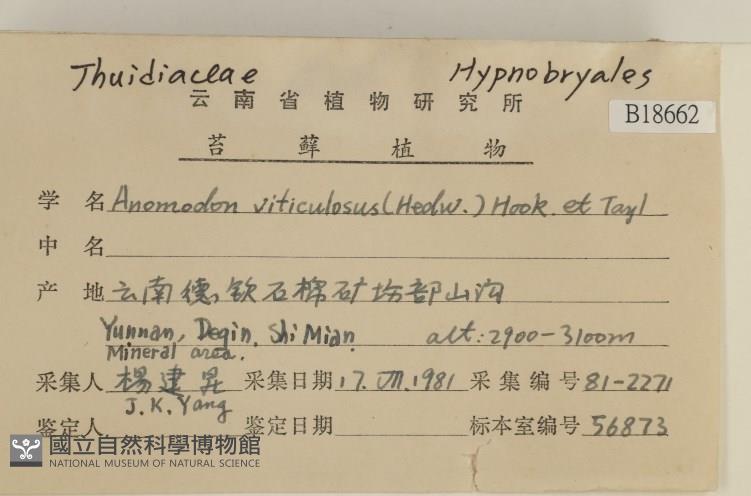 Thuidiaceae Hypnobryales
云南省植物研究所
B18662
苔藓植物
学名 Anomodon viticulosus (Hedw.) Hook. et Tayl
中名
产地 云南德钦石棉矿坊部山沟
Yunnan, Deqin, Shi Mian alt: 2900-3100m
Mineral area.
采集人 楊建昆 采集日期 17. VII. 1981 采集编号 81-2271
J.K. Yang
鉴定人 鉴定日期 标本室编号 56873
國立自然科學博物館
NATIONAL MUSEUM OF NATURAL SCIENCE